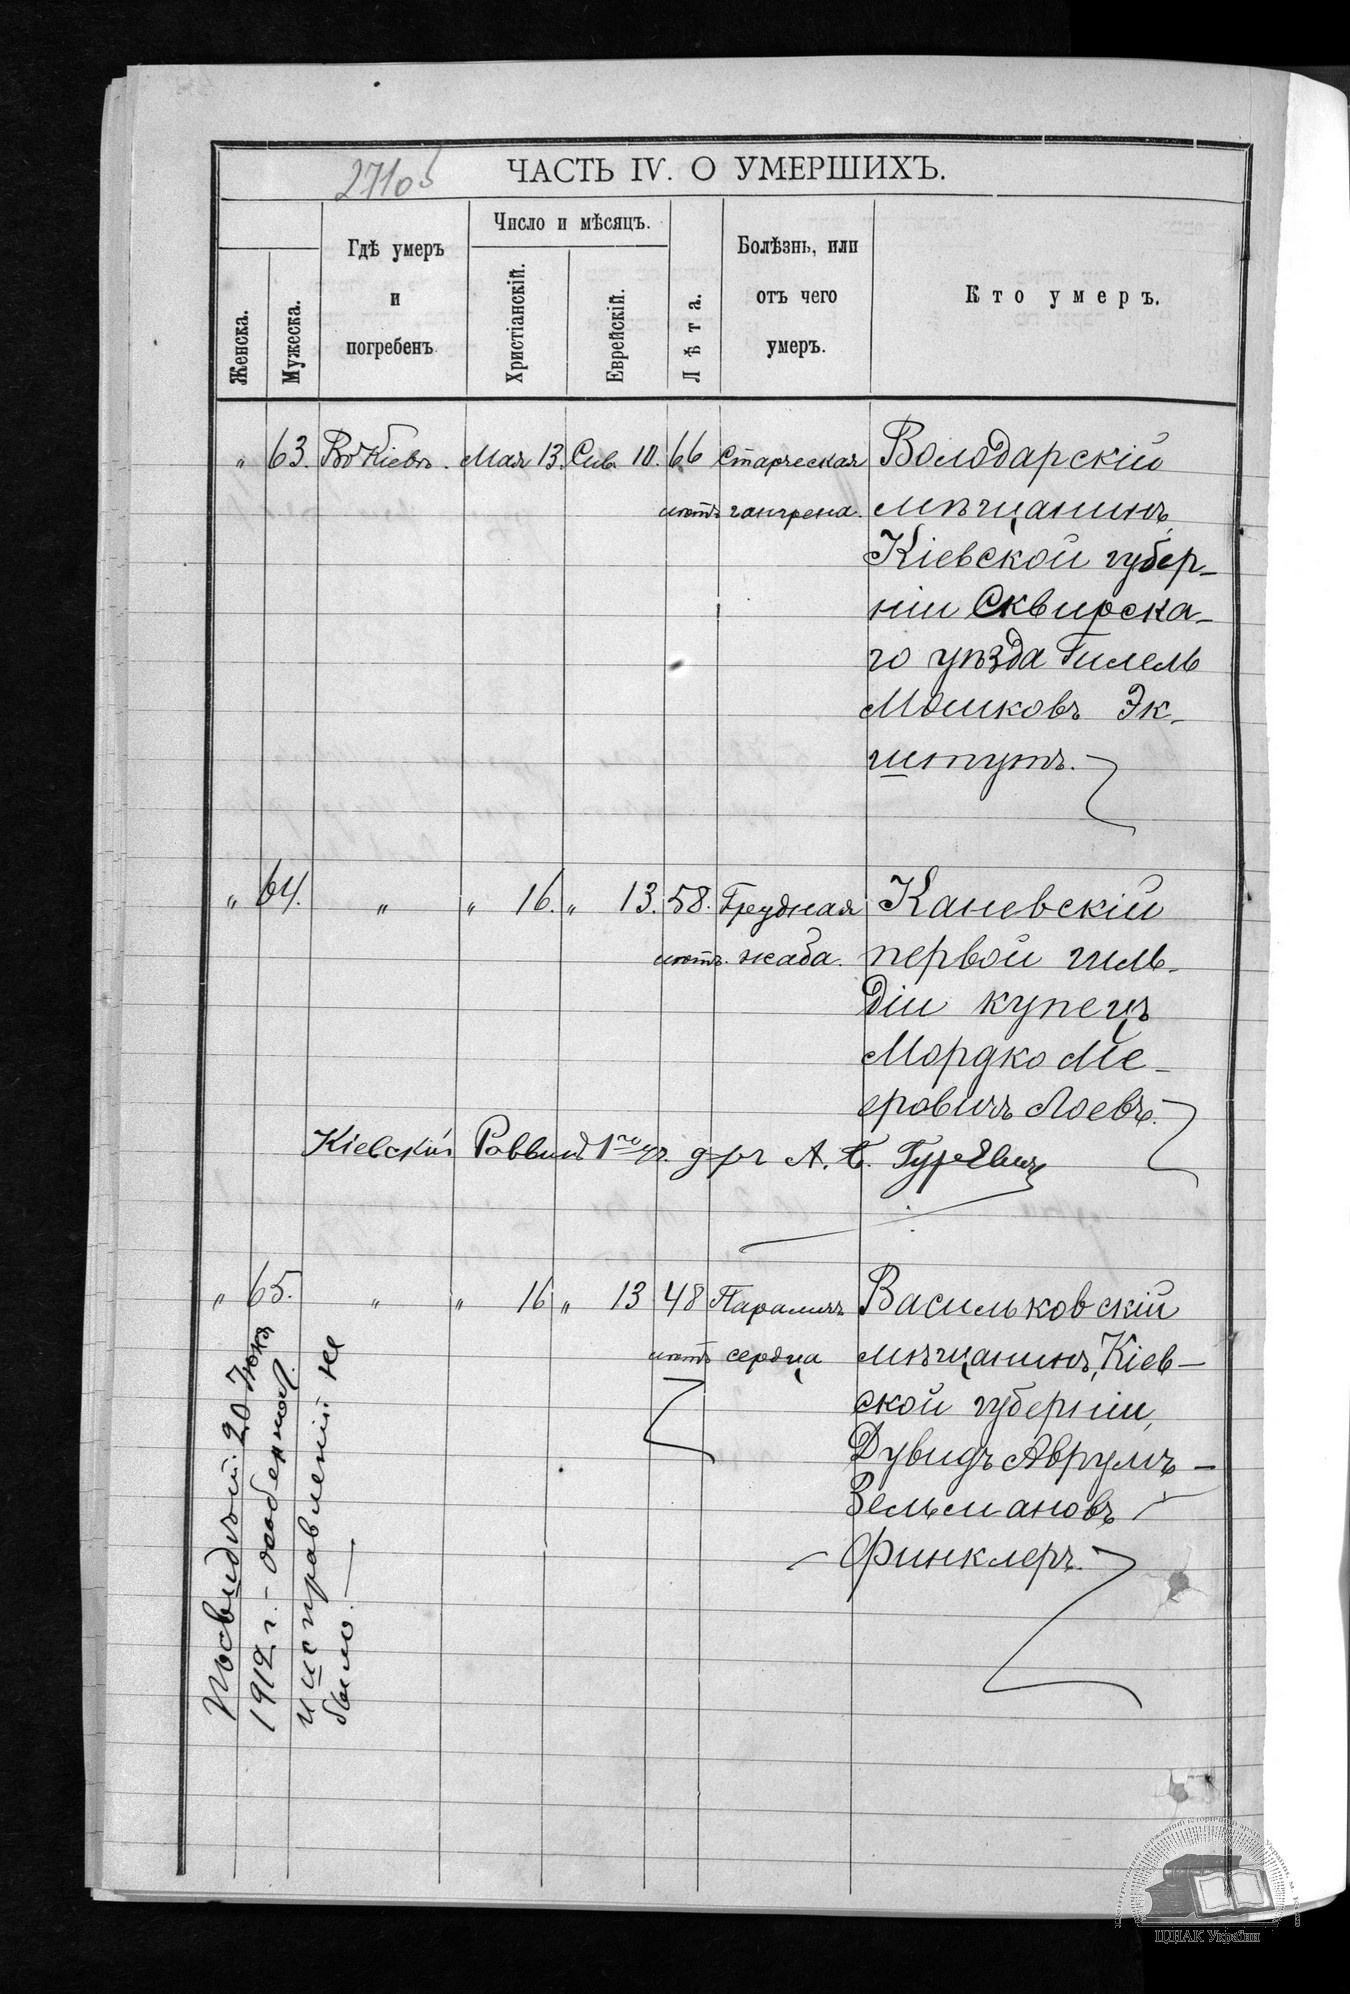 27105
ЧАСТЬ IV. О УМЕРШИХЪ.
Женска.
Мужеска.
Гдѣ умеръ
и
погребенъ
Число и мѣсяцъ.
Христіанскій.
Еврейскій.
Лѣта.
Болѣзнь, или
отъ чего
умеръ.
Кто умеръ.
" 63. Въ Кіевѣ. Мая 13. Сив. 10. 66 Старческая Володарскій
лѣтъ гангрена. мѣщанинъ,
Кіевской губер-
ніи Сквирска-
го уѣзда Гилель
Мошковъ Эк-
штутъ.
" 64. " " 16. " 13. 58. Грудная Каневскій
лѣтъ. жаба. первой гиль-
діи купецъ
Мордко Ме-
еровичъ Лоевъ.
Кіевскій Раввинъ 1го уч. д-ръ А. Б. Гуревич
" 65. " " 16 " 13 48 Параличъ Васильковскій
лѣтъ сердца мѣщанинъ, Кіев-
ской губерніи,
Дувидъ Аврумъ-
Зельмановъ
Финклеръ.
20 Іюня
1912 г. - особенной
исправленій не
было. -
ЦДІАК України